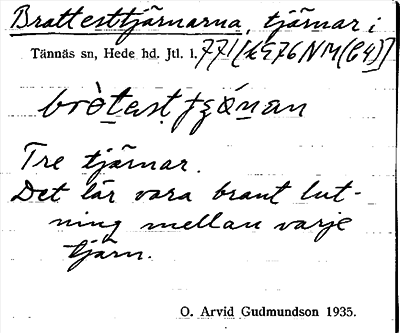 Brattesttjärnarna, tjärnar i
Tännäs sn, Hede hd. Jtl. l. 771[1976NM(C4)]
Tre tjärnar.
Det lär vara brant lut-
ning mellan varje
tjärn.
O. Arvid Gudmundson 1935.